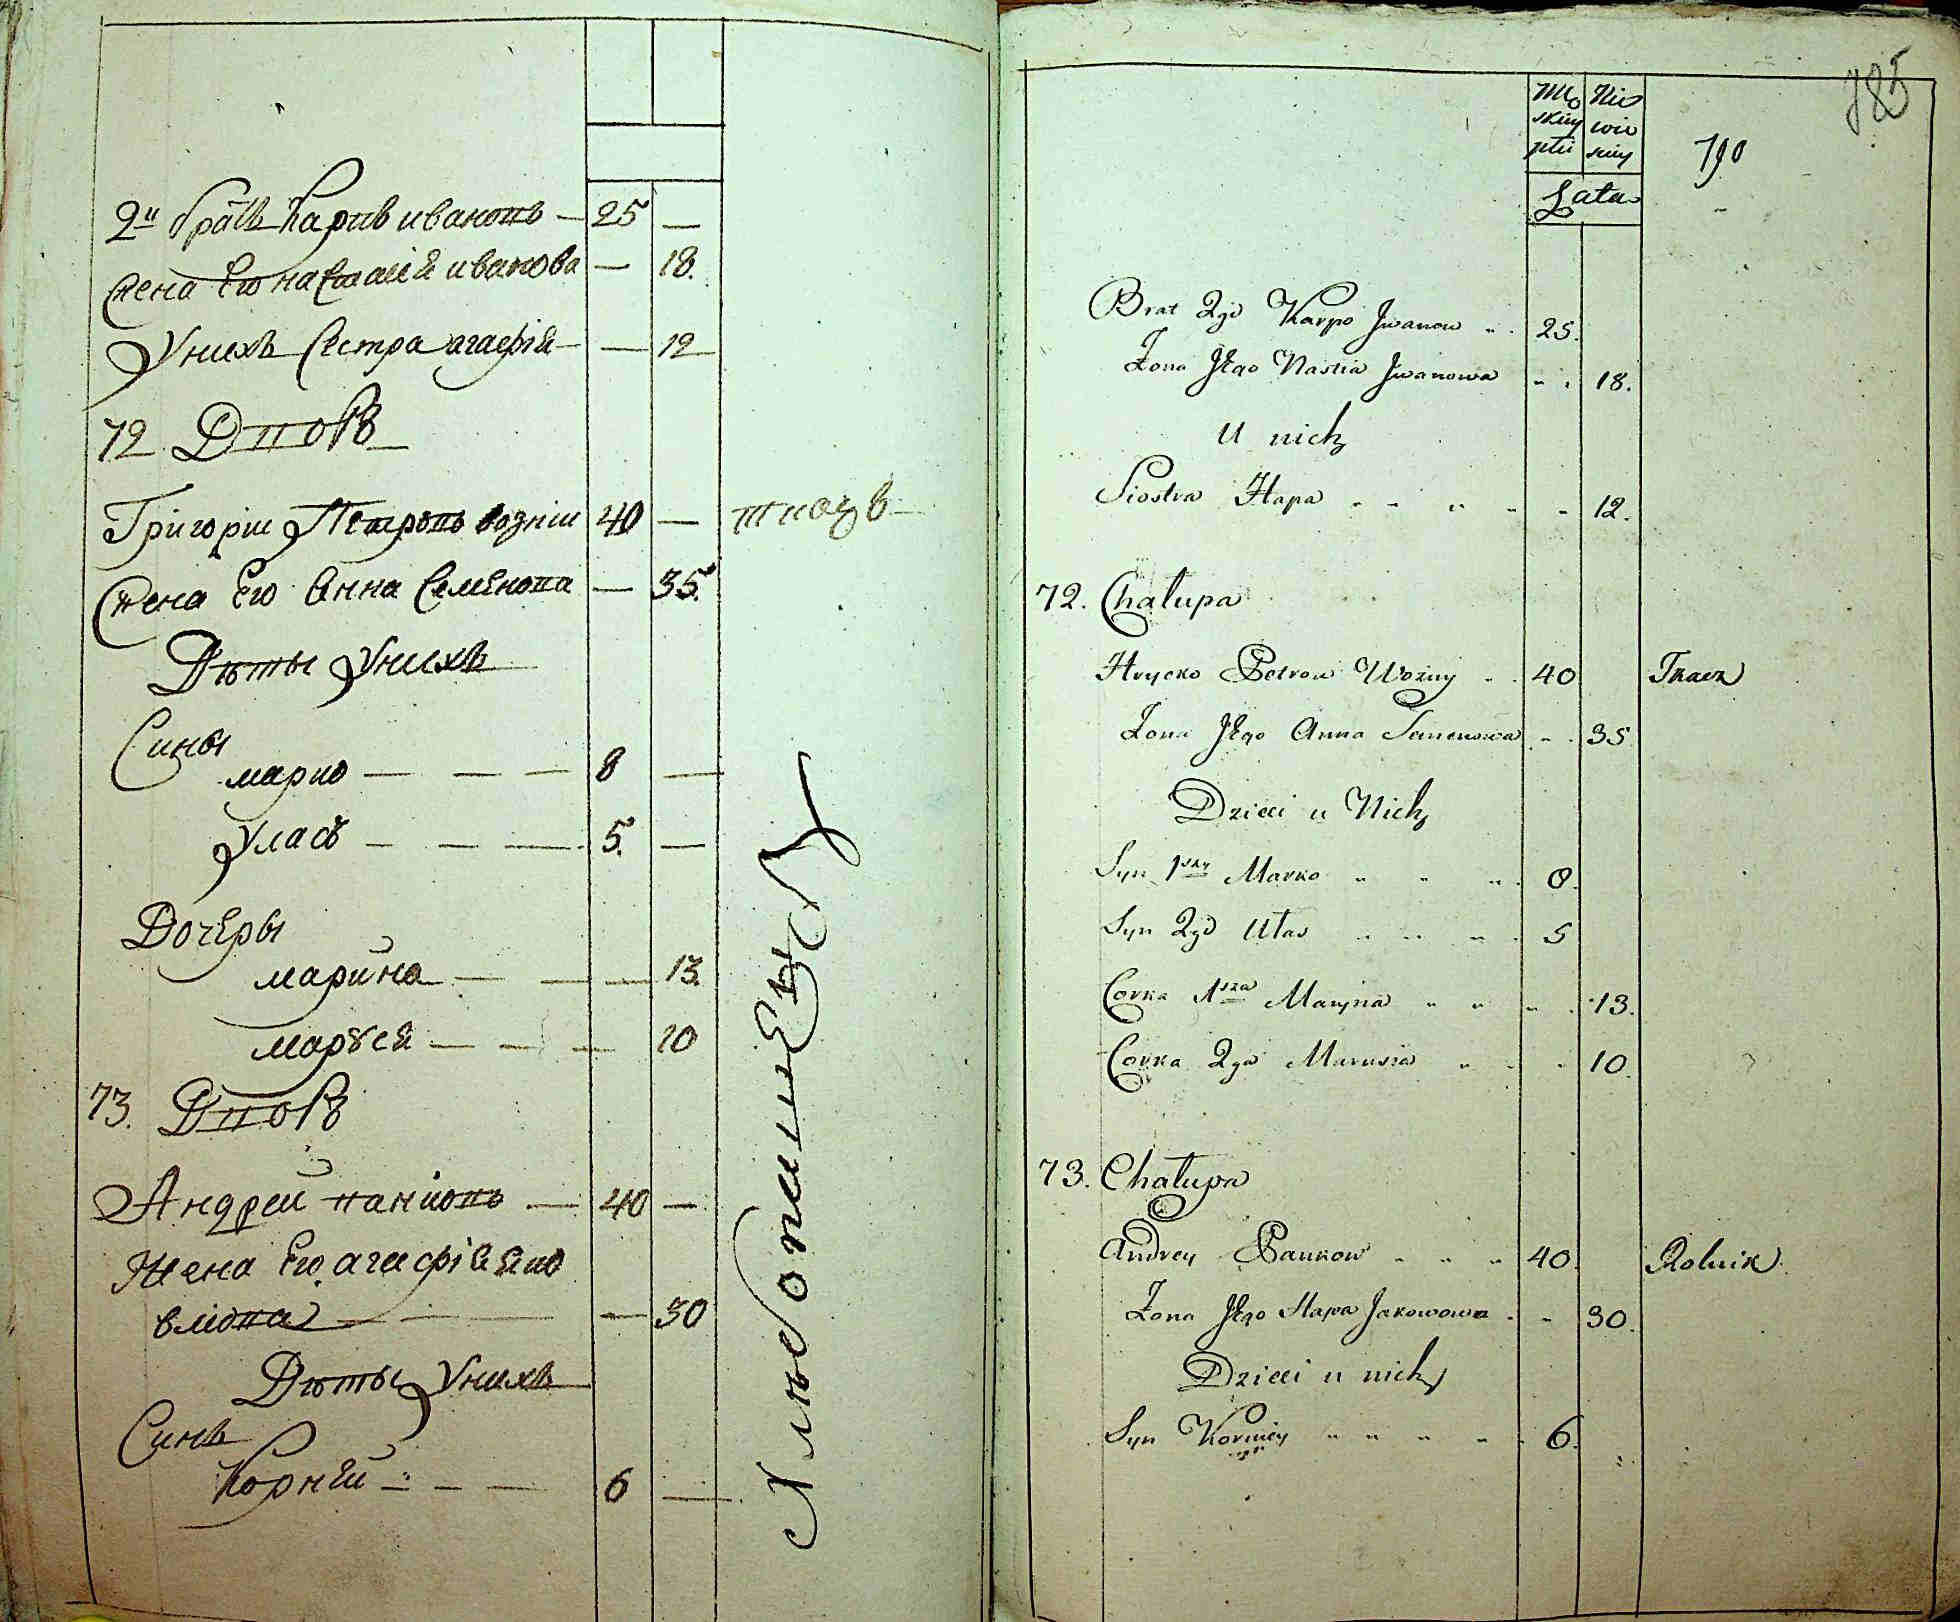 2й братъ Карпъ ивановъ — 25 —
Жена Его настасія иванова — 18.
Унихъ Сестра агафія — — 12
72 Дворъ
Григорій Петровъ возній 40 — ткачъ
Жена Его Анна Семенова — 35.
Дѣты Унихъ
Сины
марко — — — 8 —
Уласъ — — — 5. —
Дочеры
марина — — — 13.
маруся — — — 10
73. Дворъ
Андрей панковъ — 40 —
Жена Его агафія яко
влѣва — — — 30
Дѣты Унихъ
Синъ
Корнѣй — — 6 —
785
190
Męskiey płci
Niewieściey
Lata
Brat 2gi Karpo Jwanow 25.
Żona Jego Nastia Jwanowa 18.
U nich
Siostra Hapa 12.
72. Chałupa
Hrycko Petrow Wozny 40 Tkacz
Żona Jego Anna Semenowa 35
Dzieci u Nich
Syn 1szy Marko 8.
Syn 2gi Ułas 5
Corka 1sza Maryna 13.
Corka 2ga Marusia 10.
73. Chałupa
Andrey Pankow 40. Rolnik
Żona Jego Hapa Jakowowa 30.
Dzieci u nich
Syn Korniey 6.